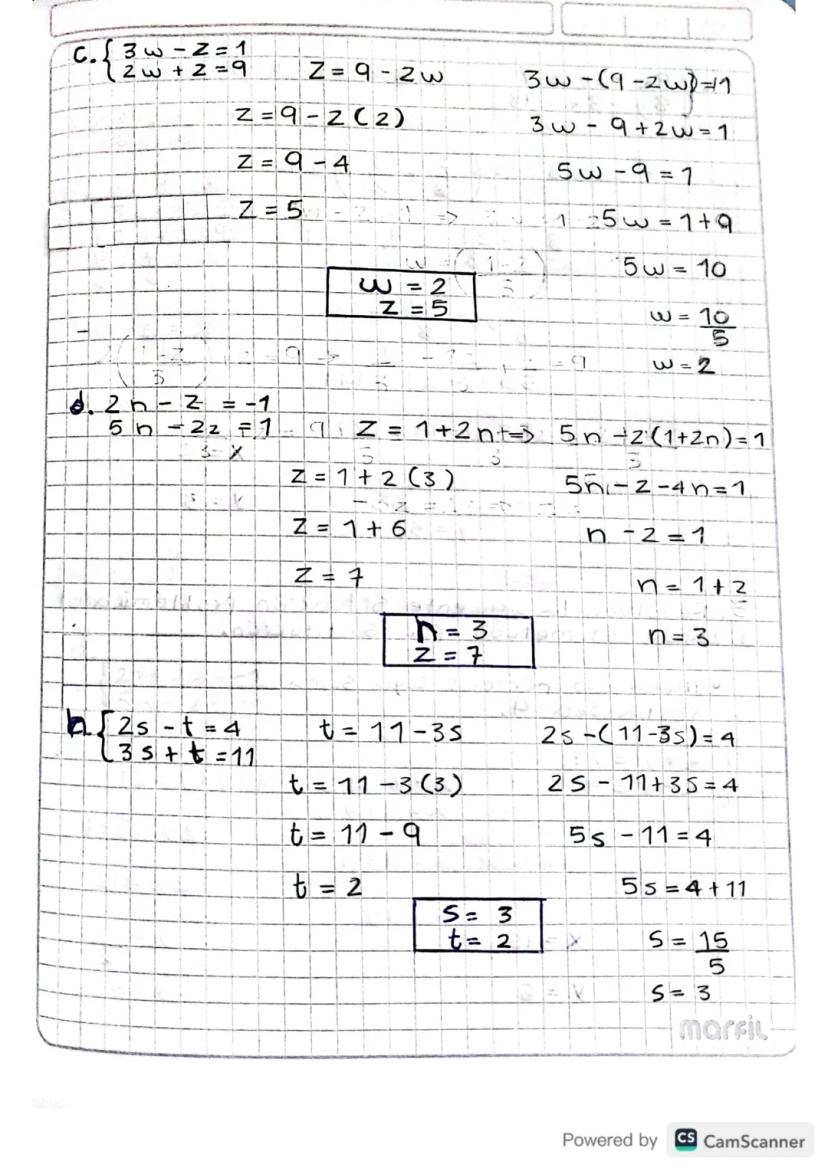 c. { 3w - z = 1
2w + z = 9
z = 9 - 2w
3w - (9 - 2w) = 1
z = 9 - 2(2)
3w - 9 + 2w = 1
z = 9 - 4
5w - 9 = 1
z = 5
5w = 1 + 9
5w = 10
w = 2
z = 5
w = 10/5
w = 2
d. 2n - z = -1
5n - 2z = 1
z = 1 + 2n => 5n - 2(1+2n) = 1
z = 1 + 2(3)
5n - 2 - 4n = 1
z = 1 + 6
n - 2 = 1
z = 7
n = 1 + 2
n = 3
z = 7
n = 3
h. { 2s - t = 4
3s + t = 11
t = 11 - 3s
2s - (11 - 3s) = 4
t = 11 - 3(3)
2s - 11 + 3s = 4
t = 11 - 9
5s - 11 = 4
t = 2
5s = 4 + 11
s = 3
t = 2
s = 15/5
s = 3
marfil
Powered by CS CamScanner